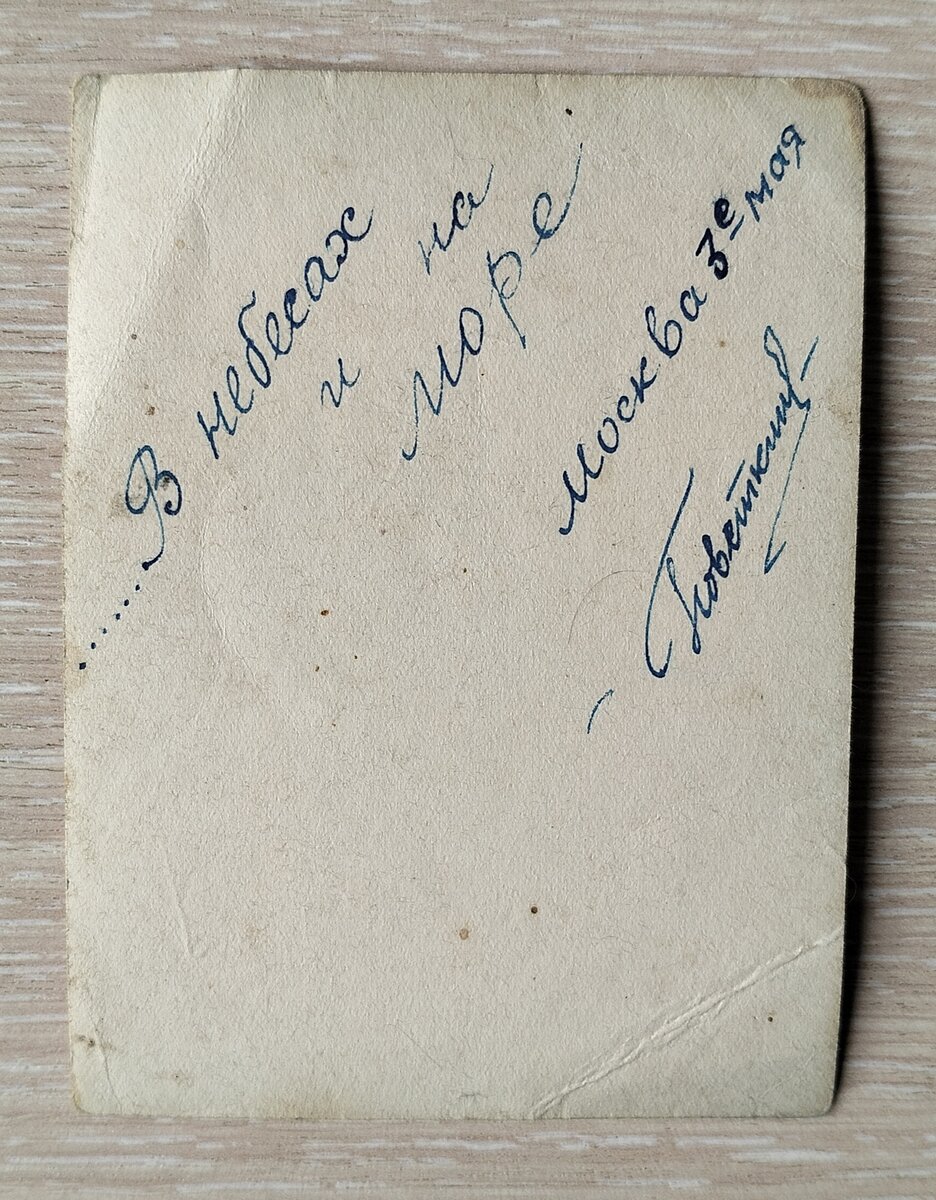 ......В небесах
и на
море
Москва 3е мая
Поветкин